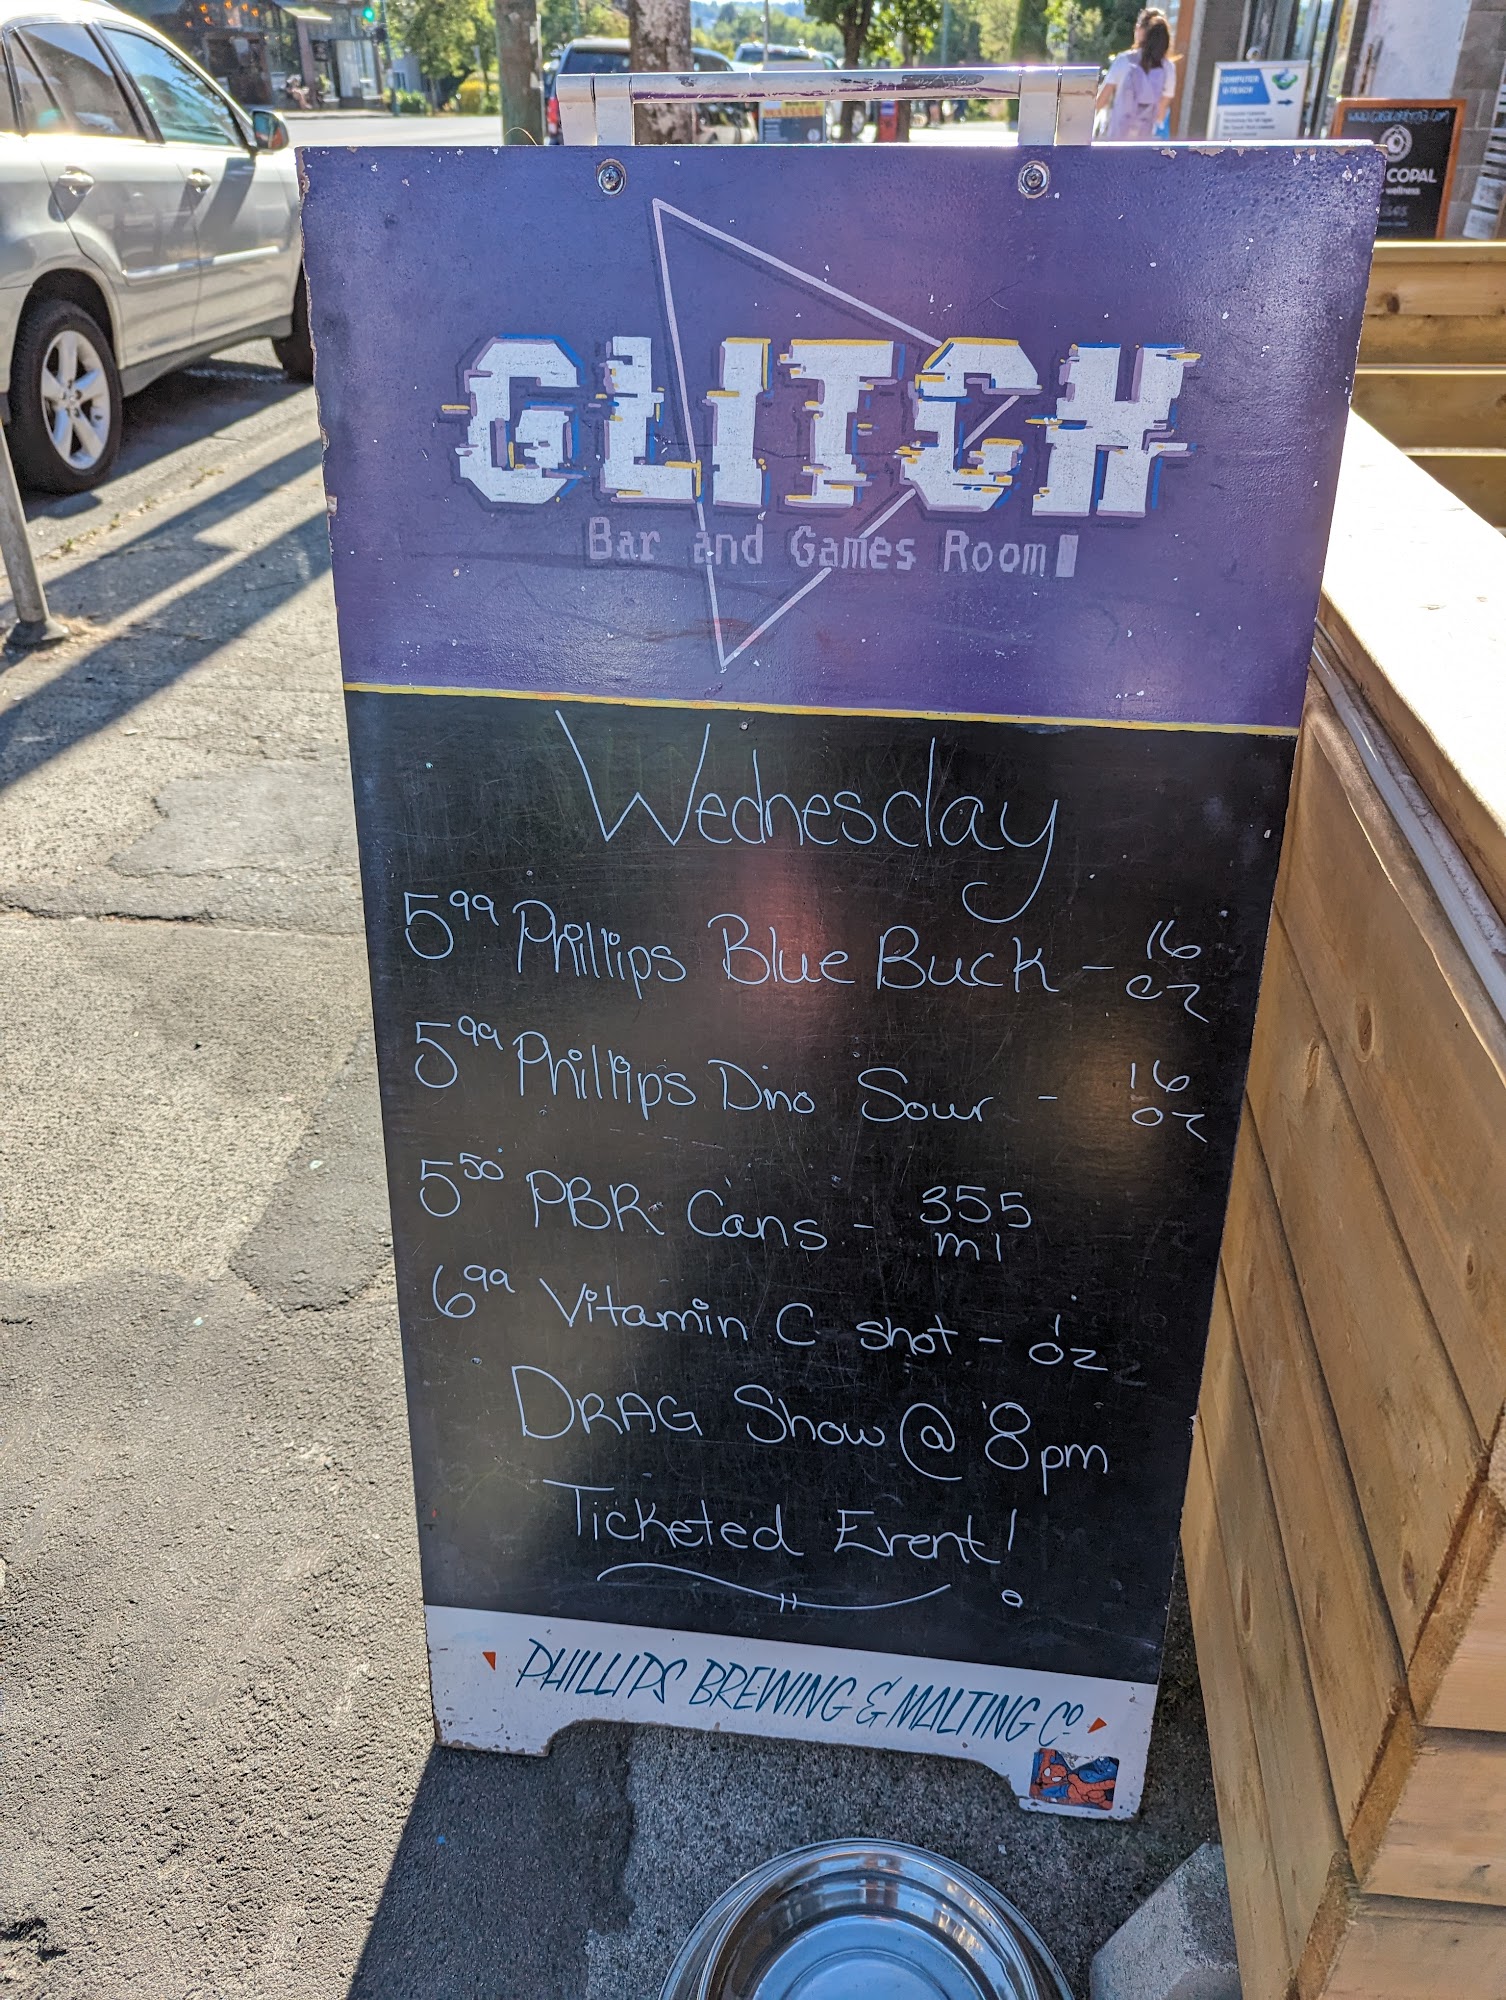 GLITCH
Bar and Games Room
Wednesday
5.99 Phillips Blue Buck - 16 oz
5.99 Phillips Dino Sour - 16 oz
5.50 PBR Cans - 355 ml
6.99 Vitamin C shot - 1 oz
DRAG Show @ 8pm
Ticketed Event!
PHILLIPS BREWING & MALTING Co
COMPUTER
COPAL
wellness